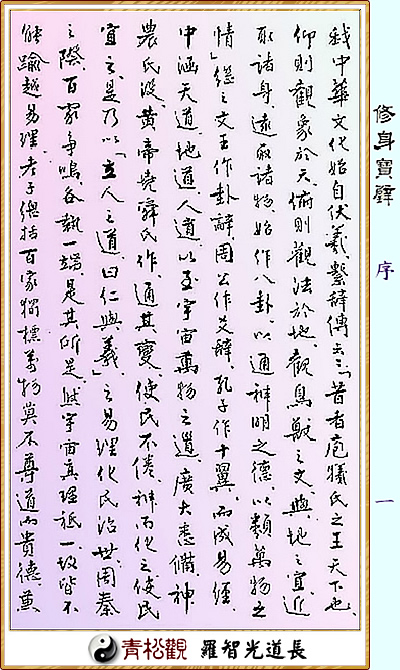 修身寶璧
序
一
我中華文化始自伏羲、繫辭傳云：「昔者庖犧氏之王天下也、
仰則觀象於天、俯則觀法於地、觀鳥獸之文與地之宜近
取諸身、遠取諸物、始作八卦、以通神明之德、以類萬物之
情」繼之文王作卦辭、周公作爻辭、孔子作十翼、而成易經、
中涵天道、地道、人道、以至宇宙萬物之道、廣大悉備、神
農氏沒、黃帝堯舜氏作、通其變、使民不倦、神而化之、使民
宜之、是乃以「立人之道、曰仁與義」之易理化民治世、周秦
之際、百家爭鳴、各執一端、是其所是、然宇宙真理祗一、故皆不
能踰越易理、老子總括百家獨標萬物莫不尊道而貴德、薰
青松觀 羅智光道長